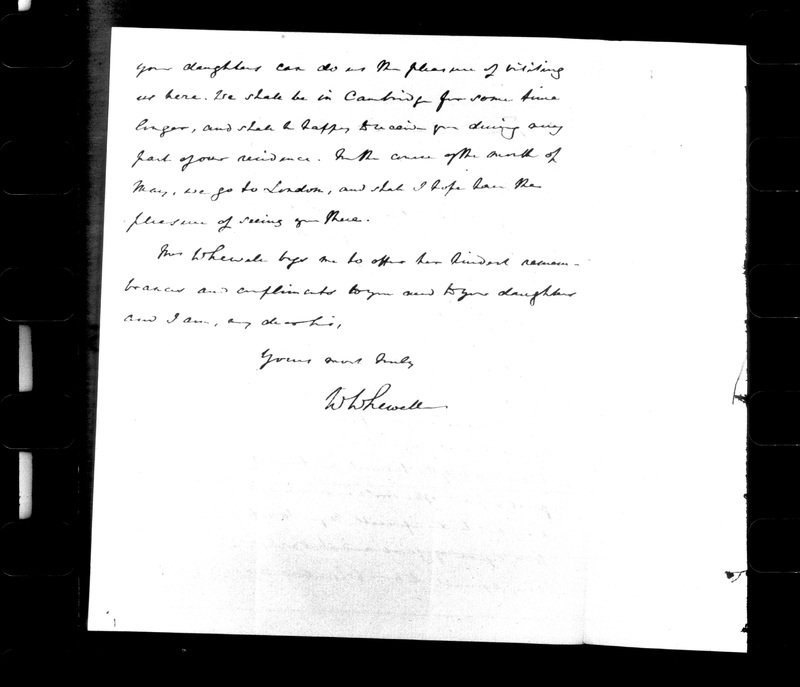 your daughters can do us the pleasure of visiting
us here. We shall be in Cambridge for some time
longer, and shall be happy to receive you during any
part of our residence. In the course of the month of
May, we go to London, and shall I hope have the
pleasure of seeing you there.
Mrs Whewell begs me to offer her kindest remem-
brances and compliments to you and to your daughters
and I am, my dear Sir,
Yours most truly
W Whewell